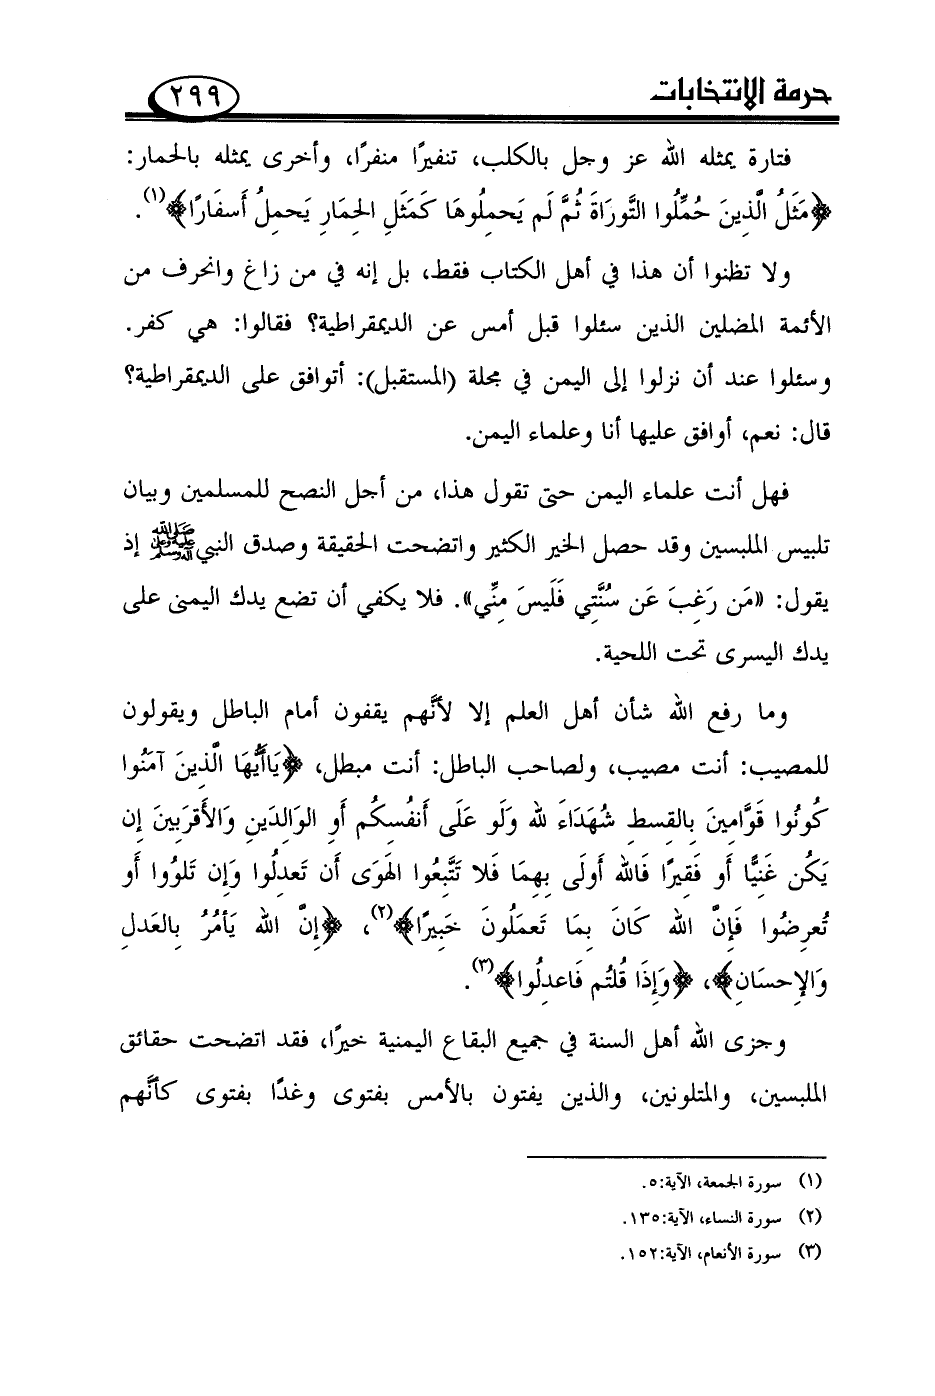 حرمة الانتخابات ٢٩٩
فتارة يمثله الله عز وجل بالكلب، تنفيرًا منفرًا، وأخرى يمثله بالحمار:
﴿مَثَلُ الَّذِينَ حُمِّلُوا التَّورَاةَ ثُمَّ لَم يَحمِلُوهَا كَمَثَلِ الحِمَارِ يَحمِلُ أَسفَارًا﴾(١).
ولا تظنوا أن هذا في أهل الكتاب فقط، بل إنه في من زاغ وانحرف من
الأئمة المضلين الذين سئلوا قبل أمس عن الديمقراطية؟ فقالوا: هي كفر.
وسئلوا عند أن نزلوا إلى اليمن في مجلة (المستقبل): أتوافق على الديمقراطية؟
قال: نعم، أوافق عليها أنا وعلماء اليمن.
فهل أنت علماء اليمن حتى تقول هذا، من أجل النصح للمسلمين وبيان
تلبيس الملبسين وقد حصل الخير الكثير واتضحت الحقيقة وصدق النبي ﷺ إذ
يقول: «مَن رَغِبَ عَن سُنَّتِي فَلَيسَ مِنِّي». فلا يكفي أن تضع يدك اليمنى على
يدك اليسرى تحت اللحية.
وما رفع الله شأن أهل العلم إلا لأنَّهم يقفون أمام الباطل ويقولون
للمصيب: أنت مصيب، ولصاحب الباطل: أنت مبطل، ﴿يَاأَيُّهَا الَّذِينَ آمَنُوا
كُونُوا قَوَّامِينَ بِالقِسطِ شُهَدَاءَ لله وَلَو عَلَى أَنفُسِكُم أَوِ الوَالِدَينِ وَالأَقرَبِينَ إِن
يَكُن غَنِيًّا أَو فَقِيرًا فَالله أَولَى بِهِمَا فَلا تَتَّبِعُوا الهَوَى أَن تَعدِلُوا وَإِن تَلوُوا أَو
تُعرِضُوا فَإِنَّ الله كَانَ بِمَا تَعمَلُونَ خَبِيرًا﴾(٢)، ﴿إِنَّ الله يَأمُرُ بِالعَدلِ
وَالإِحسَانِ﴾، ﴿وَإِذَا قُلتُم فَاعدِلُوا﴾(٣).
وجزى الله أهل السنة في جميع البقاع اليمنية خيرًا، فقد اتضحت حقائق
الملبسين، والمتلونين، والذين يفتون بالأمس بفتوى وغدًا بفتوى كأنَّهم
(١) سورة الجمعة، الآية:٥.
(٢) سورة النساء، الآية:١٣٥.
(٣) سورة الأنعام، الآية:١٥٢.